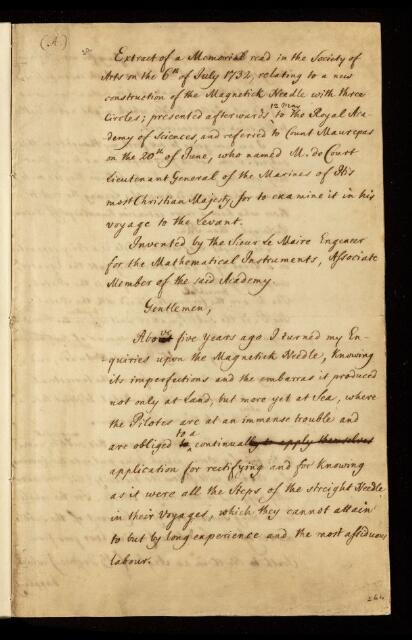 (A)
Extract of a Memorial read in the Society of
Arts on the 6th of July 1732, relating to a new
construction of the Magnetick Needle with three
Circles; presented afterwards 12 May to the Royal Aca-
demy of Sciences, and referred to Count Maurepas
on the 20th of June, who named M. de Court
Lieutenant General of the Marines of His
most Christian Majesty, for to examine it in his
voyage to the Levant.
Invented by the Sieur Le Maire Engineer
for the Mathematical Instruments, Associate
Member of the said Academy.
Gentlemen,
Above five years ago I turned my En-
quiries upon the Magnetick Needle, knowing
its imperfections and the embarras it produced
not only at Land, but more yet at Sea, where
the Pilotes are at an immense trouble and
are obliged to a continually to apply themselves
application for rectifying and for knowing
as it were all the Steps of the streight Needle
in their Voyages, which they cannot attain
to but by long experience and the most assiduous
labour.
264